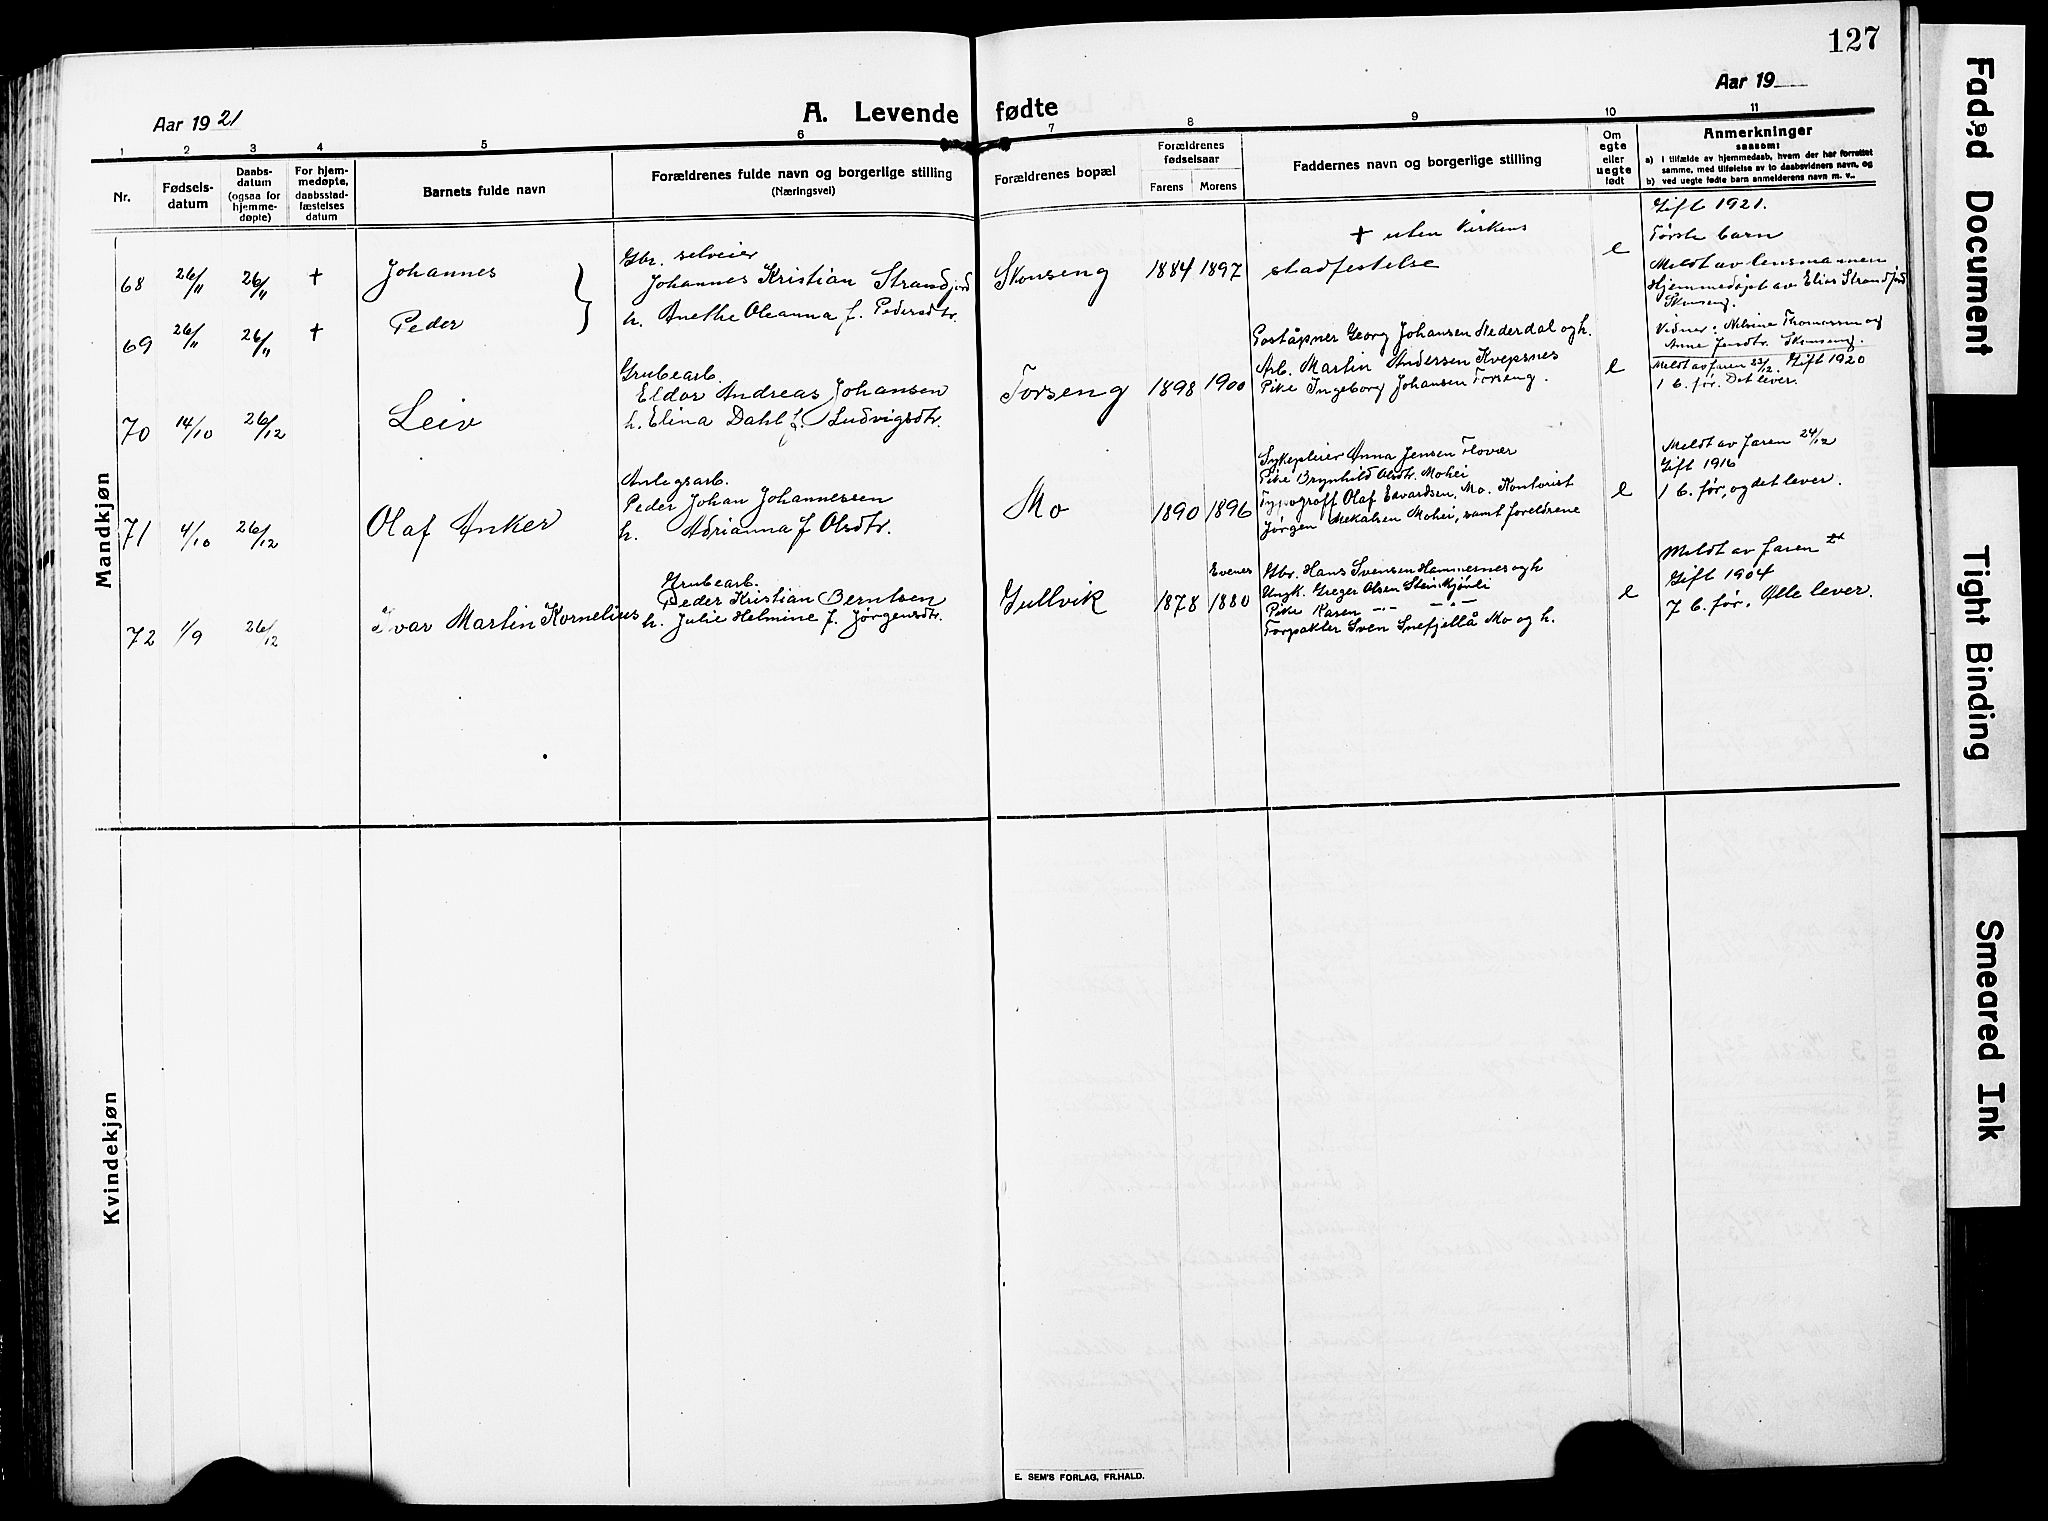 127
Aar 1921
A. Levende fødte
Aar 19
1 2 3 4 5 6 7 8 9 10 11
Nr.
Fødsels-
datum
Daabs-
datum
(ogsaa for
hjemme-
døpte)
For hjem-
medøpte,
daabsstad-
fæstelses
datum
Barnets fulde navn
Forældrenes fulde navn og borgerlige stilling
(Næringsvei)
Forældrenes bopæl
Forældrenes
fødselsaar
Farens Morens
Faddernes navn og borgerlige stilling
Om
egte
eller
uegte
født
Anmerkninger
saasom:
a) i tilfælde av hjemmedaab, hvem der har forrettet
samme, med tilføielse av to daabsvidners navn, og
b) ved uegte fødte barn anmelderens navn m. v..
Mandkjøn
68 26/11 26/11 + Johannes
Gbr. selveier
Johannes Kristian Strandjord
h. Anethe Oleanna f. Pedersdtr.
Skonseng 1884 1897
+ uten kirkens
stadfestelse
e
Gift 1921.
Første barn
Meldt av lensmannen
Hjemmedøpt av Elias Strandjord
Skonseng.
Vidner: Nilsine Thomassen og
Anne Jensdtr. Skonseng.
69 26/11 26/11 + Peder
70 14/10 26/12 Leiv
Grubearb.
Eldor Andreas Johansen
h. Elina Dahl f. Ludvigsdtr.
Forseng 1898 1900
Poståpner Georg Johansen Nederdal og h.
Arb. Martin Andersen Kvepsnes
Pike Ingeborg Johansen Forseng.
e
Meldt av faren 23/12. Gift 1920
1 b. før. Det lever.
71 4/10 26/12 Olaf Anker
Anlegsarb.
Peder Johan Johannessen
h. Adrianna f Olsdtr.
Mo 1890 1896
Sykepleier Anna Jensen Flovær
Pike Brynhild Olsdtr. Mohei
Typograff Olaf Edvardsen, Mo. Kontorist
Jørgen Mekalsen Mohei, samt foreldrene
e
Meldt av faren 24/12
Gift 1916
1 b. før, og det lever.
72 1/9 26/12 Ivar Martin Kornelius
Grubearb.
Peder Kristian Berntsen
h. Julie Helmine f. Jørgensdtr.
Gullvik 1878 Evenes 1880
Gbr. Hans Svensen Hammernes og h
Ungk. Greger Olsen Steinkjønli
Pike Karen -"- -"-
Forpakter Sven Snefjellå Mo og h.
e
Meldt av faren
Gift 1904
7 b. før. Alle lever.
Kvindekjøn
E. SEM'S FORLAG, FR.HALD.
Faded Document
Tight Binding
Smeared Ink